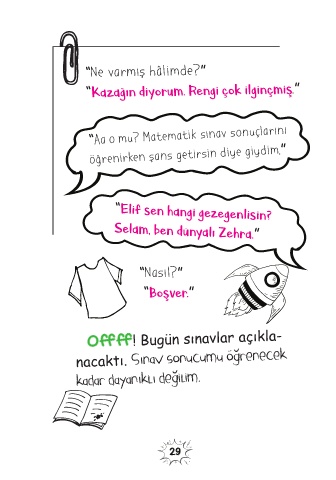 "Ne varmış hâlimde?"
"Kazağın diyorum. Rengi çok ilginçmiş."
"Aa o mu? Matematik sınav sonuçlarını
öğrenirken şans getirsin diye giydim."
"Elif sen hangi gezegenlisin?
Selam, ben dünyalı Zehra."
"Nasıl?"
"Boşver."
Offff! Bugün sınavlar açıkla-
nacaktı. Sınav sonucumu öğrenecek
kadar dayanıklı değilim.
29